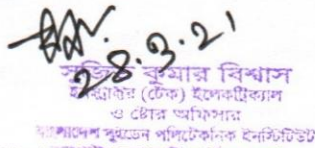 28.3.21
সুজিত কুমার বিশ্বাস
ইন্সট্রাক্টর (টেক) ইলেকট্রিক্যাল
ও ষ্টোর অফিসার
বাংলাদেশ সুইডেন পলিটেকনিক ইনস্টিটিউট